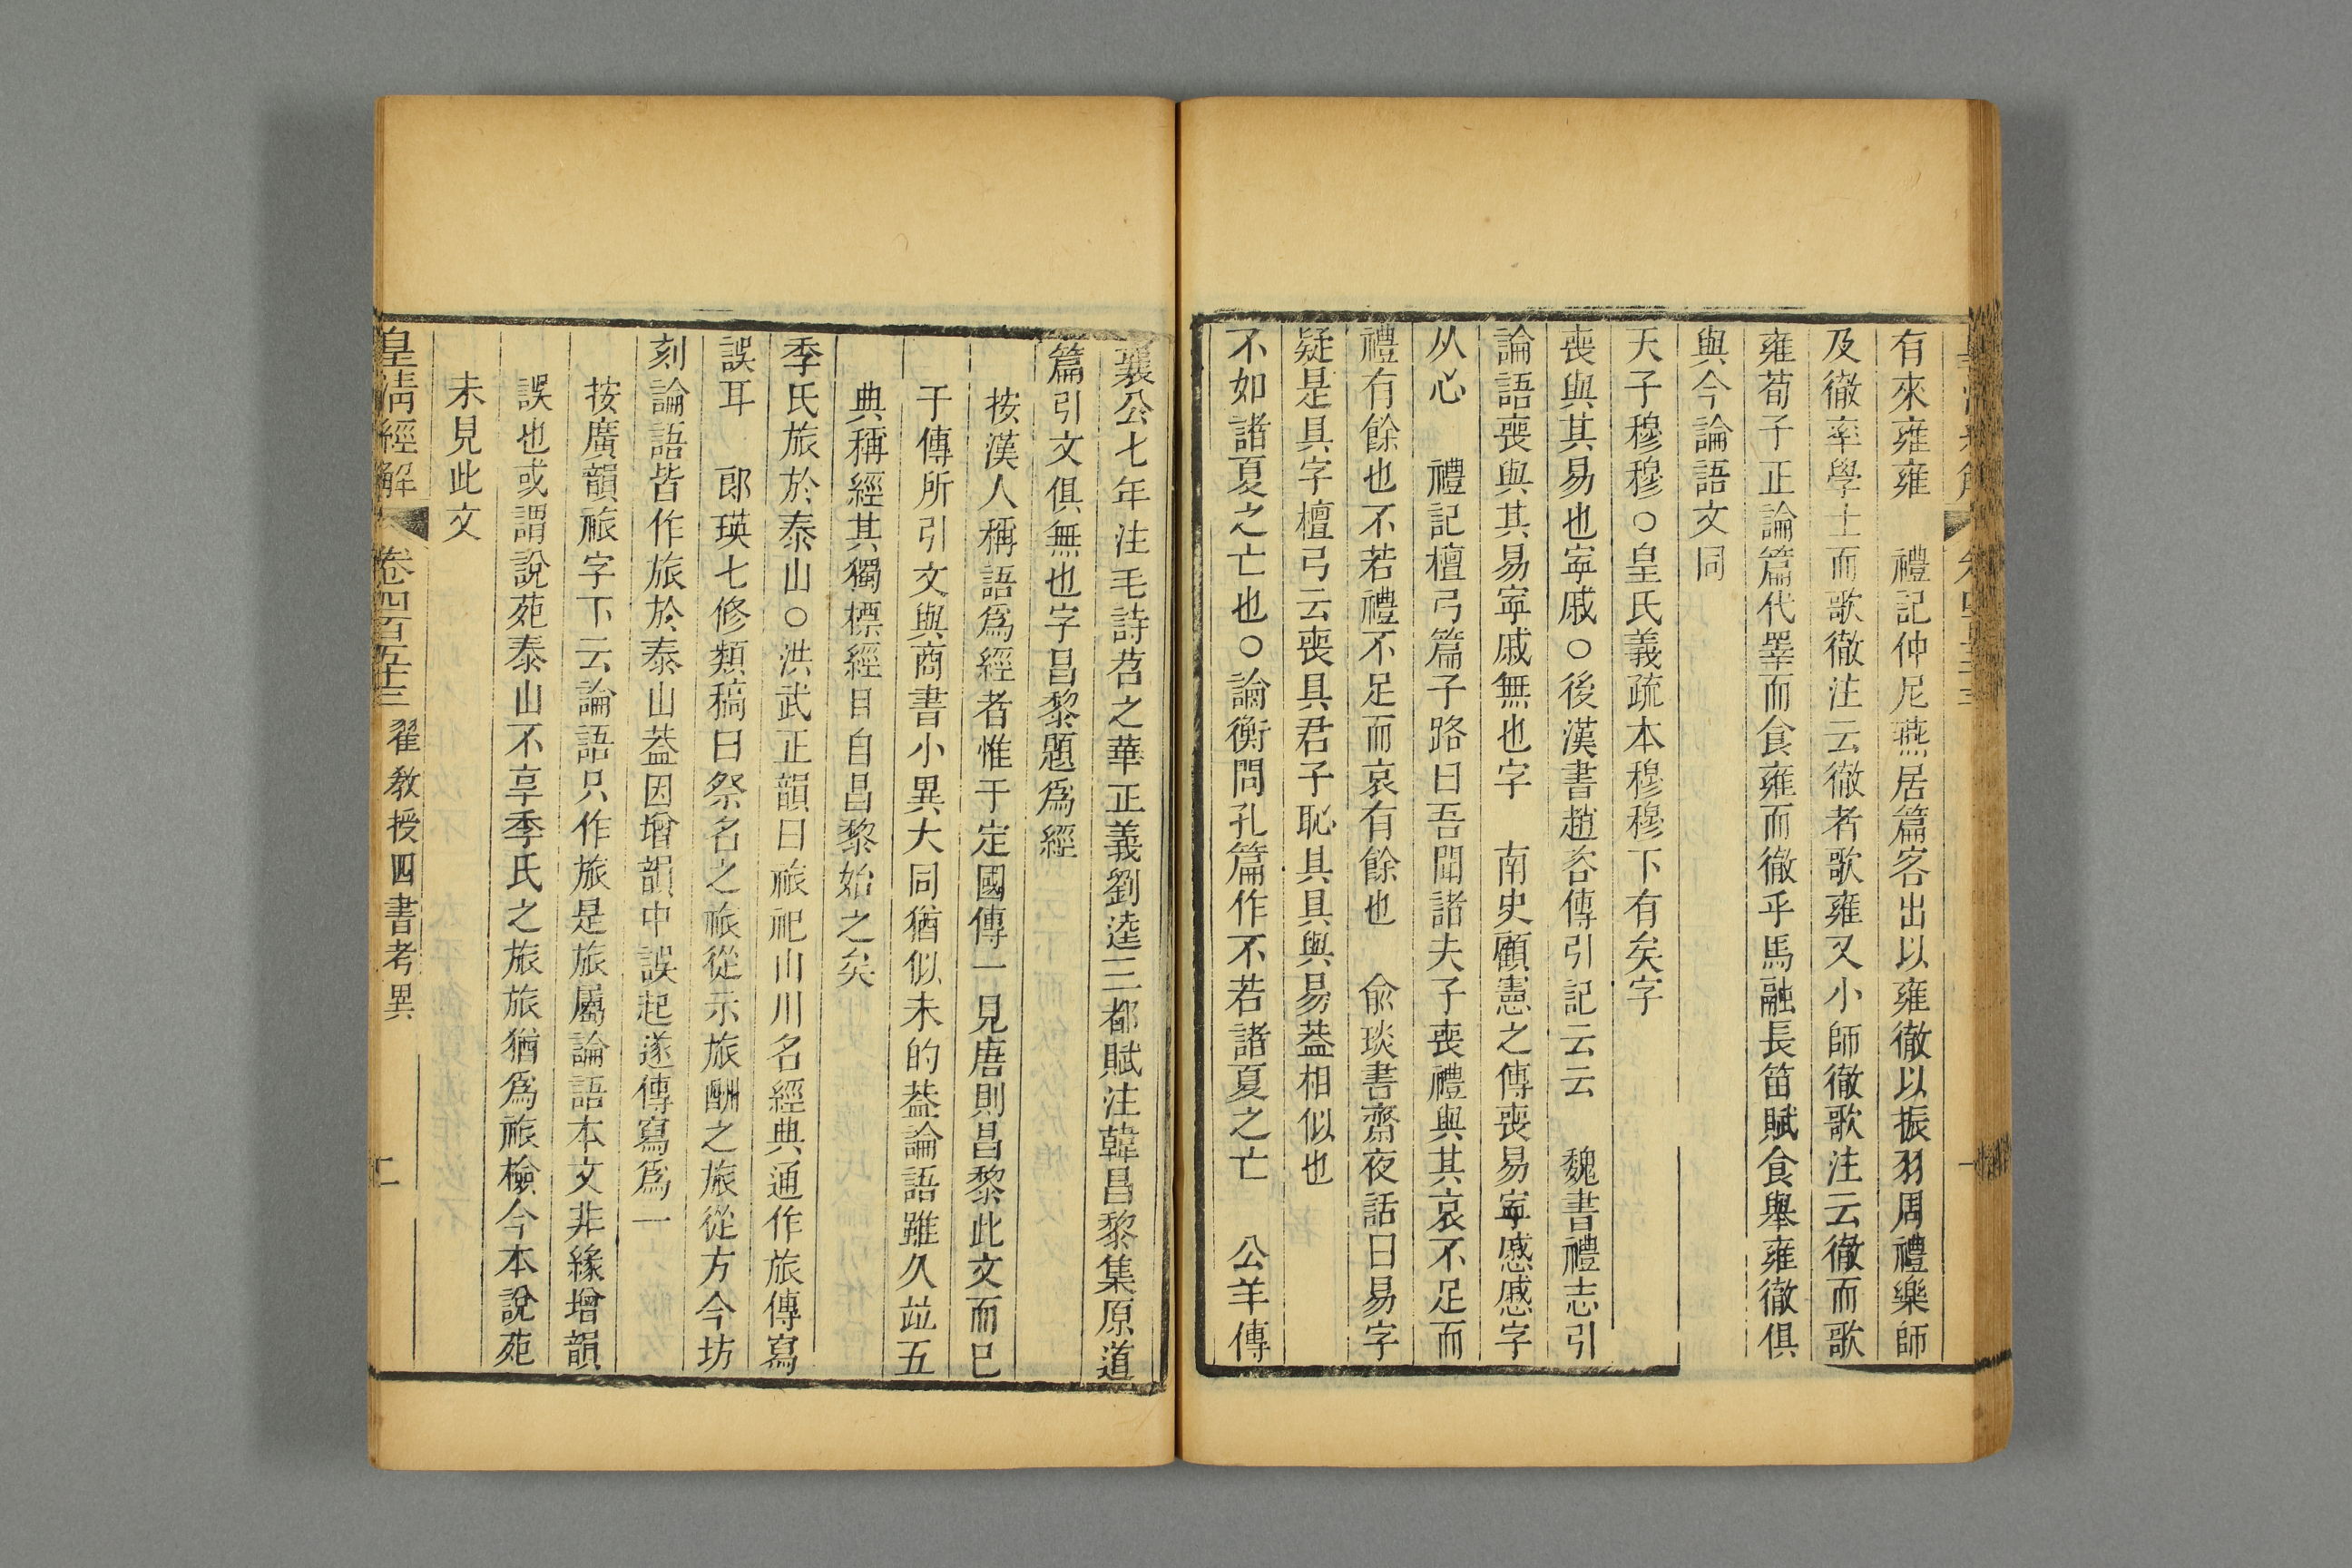 有來雍雍　禮記仲尼燕居篇客出以雍徹以振羽周禮樂師
及徹率學士而歌徹注云徹者歌雍又小師徹歌注云徹而歌
雍荀子正論篇代睪而食雍而徹乎馬融長笛賦食舉雍徹俱
與今論語文同
天子穆穆○皇氏義疏本穆穆下有矣字
喪與其易也寧戚○後漢書趙咨傳引記云云　魏書禮志引
論語喪與其易寧戚無也字　南史顧憲之傳喪易寧慼慼字
从心　禮記檀弓篇子路曰吾聞諸夫子喪禮與其哀不足而
禮有餘也不若禮不足而哀有餘也　俞琰書齋夜話曰易字
疑是具字檀弓云喪具君子恥具具與易葢相似也
不如諸夏之亡也○論衡問孔篇作不若諸夏之亡　公羊傳
襄公七年注毛詩苕之華正義劉逵三都賦注韓昌黎集原道
篇引文俱無也字昌黎題爲經
按漢人稱語爲經者惟于定國傳一見唐則昌黎此文而已
于傳所引文與商書小異大同猶似未的葢論語雖久竝五
典稱經其獨標經目自昌黎始之矣
季氏旅於泰山○洪武正韻曰祣祀山川名經典通作旅傳寫
誤耳　郎瑛七修類稿曰祭名之祣從示旅酬之旅從方今坊
刻論語皆作旅於泰山葢因增韻中誤起遂傳寫爲一
按廣韻祣字下云論語只作旅是旅屬論語本文非緣增韻
誤也或謂說苑泰山不享季氏之旅旅猶爲祣檢今本說苑
未見此文
皇清經解　卷四百五十三　翟教授四書考異　二